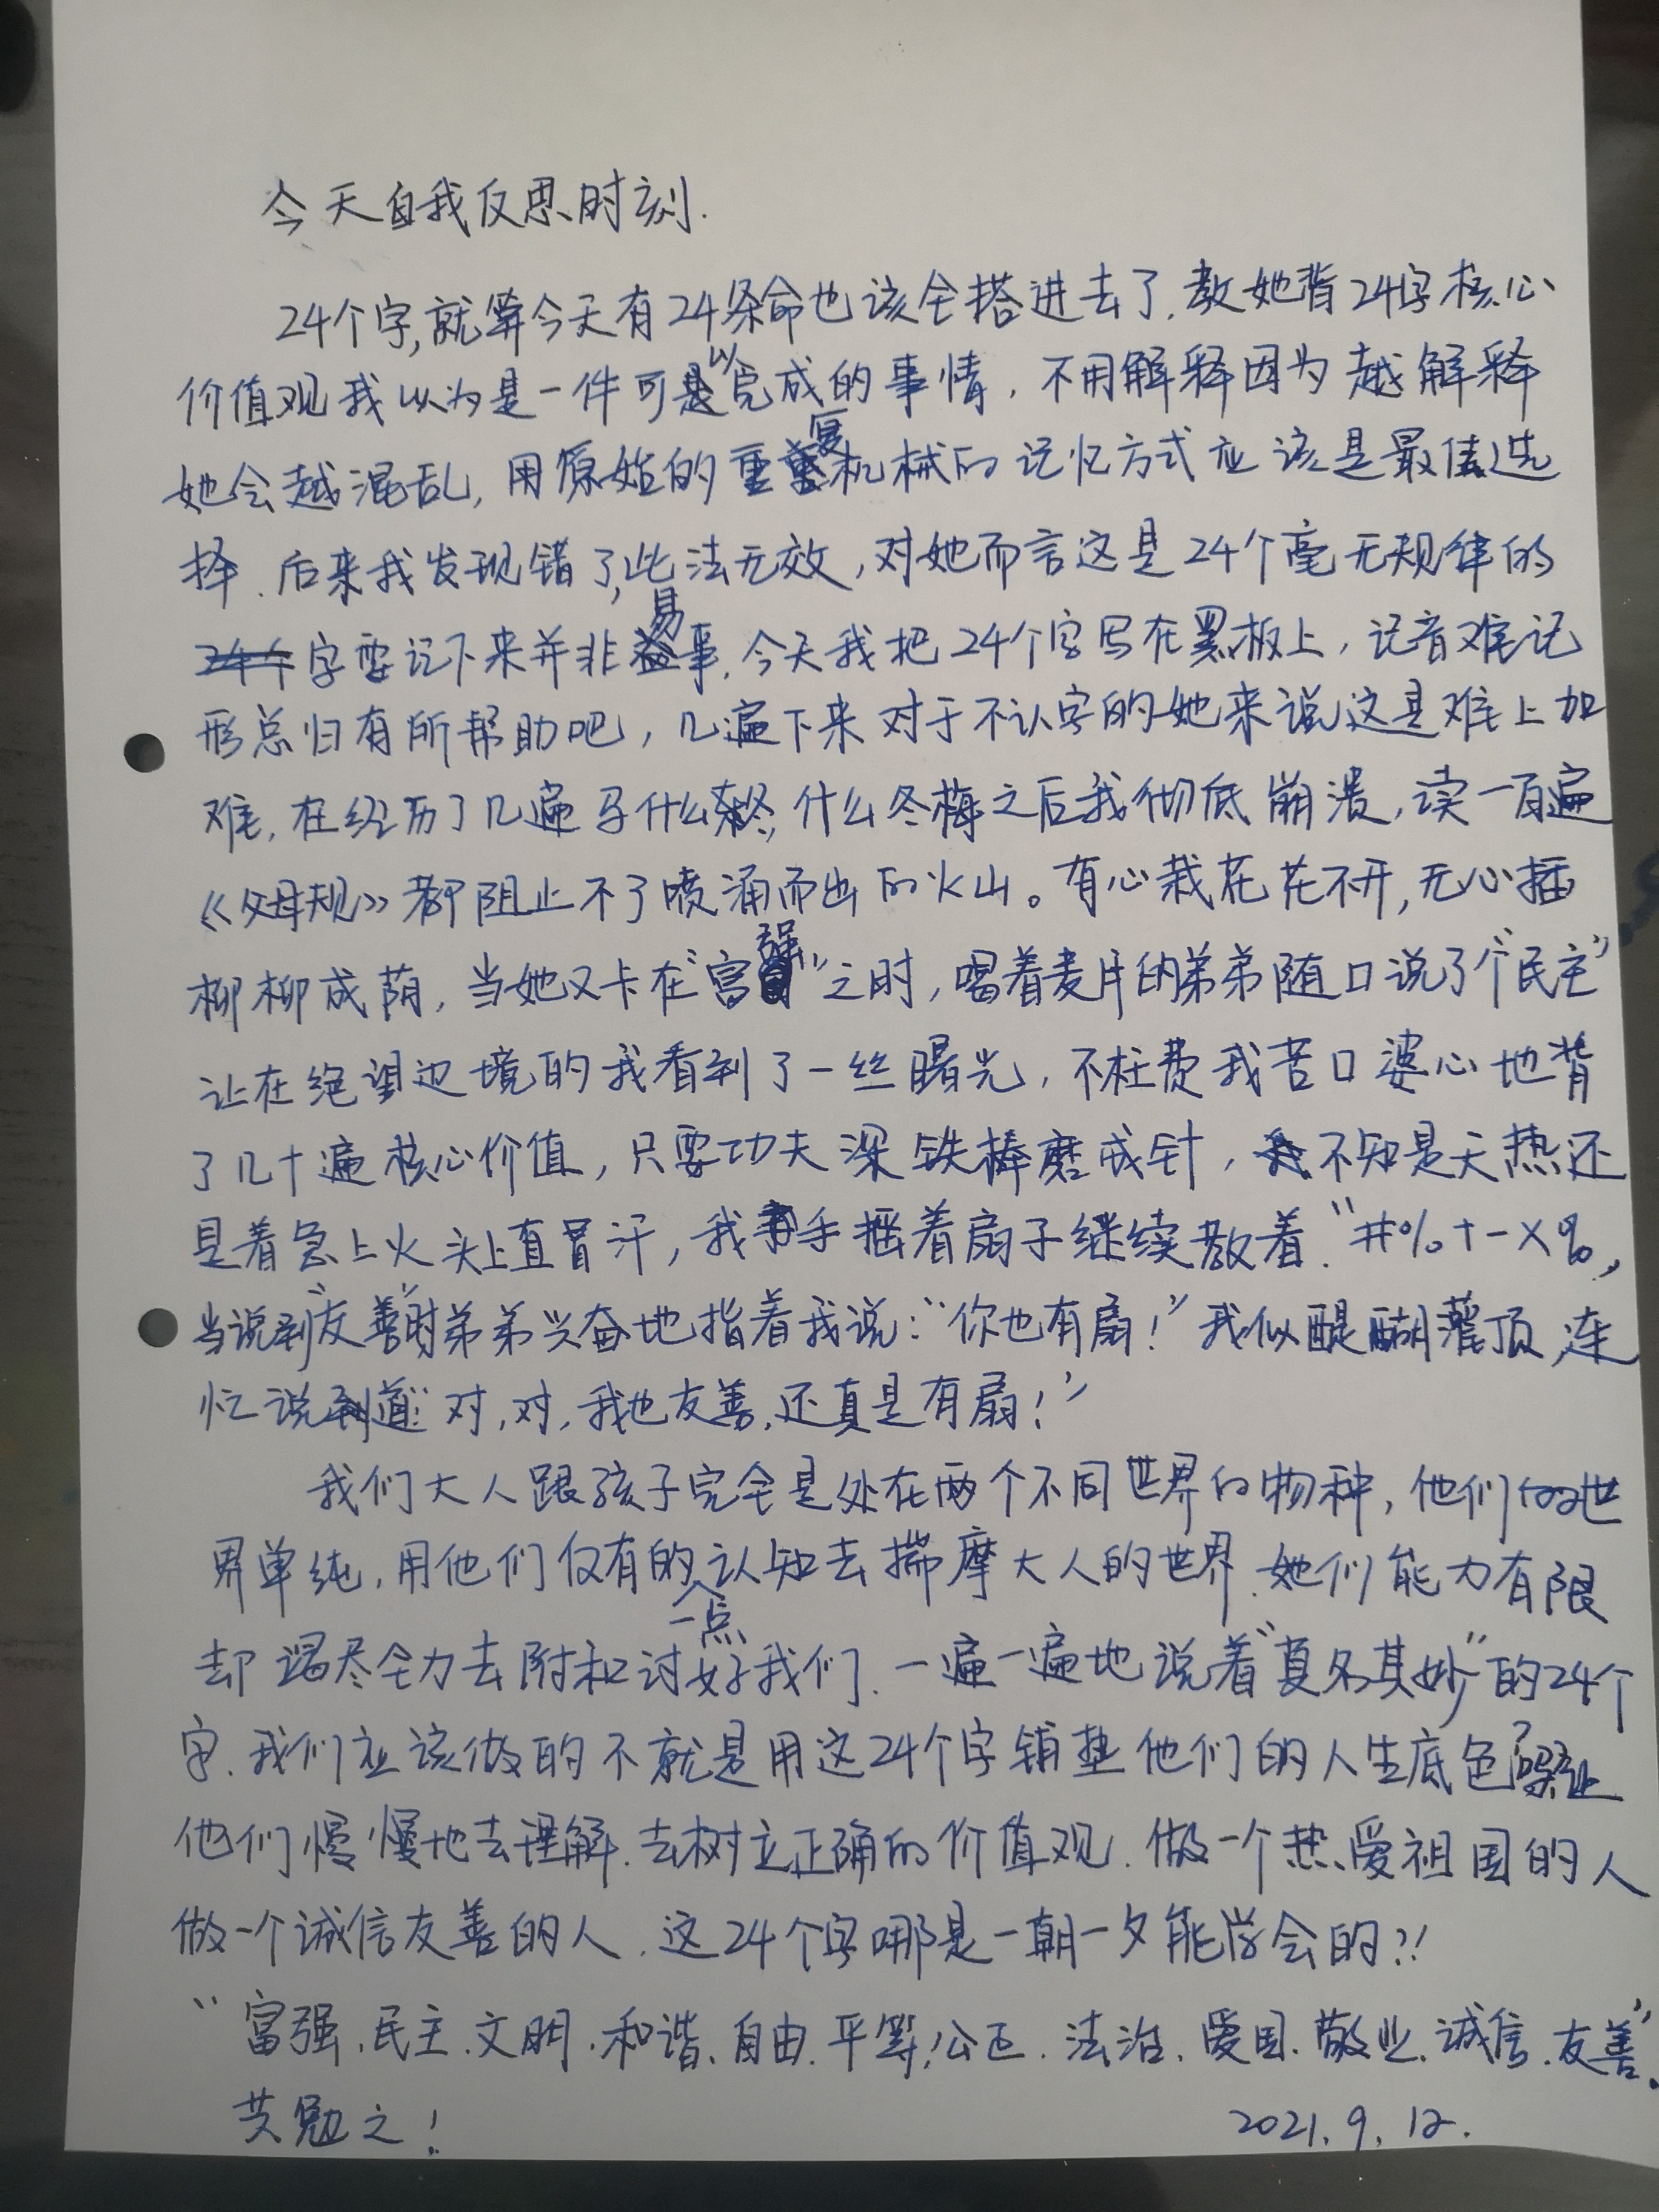 今天自我反思时刻.
24个字,就算今天有24条命也该全搭进去了.教她背24字核心
价值观我以为是一件可以完成的事情,不用解释因为越解释
她会越混乱,用原始的重复机械的记忆方式应该是最佳选
择.后来我发现错了,此法无效,对她而言这是24个毫无规律的
字要记下来并非易事.今天我把24个字写在黑板上,记音难记
形总归有所帮助吧,几遍下来对于不认字的她来说这是难上加
难,在经历了几遍马什么冬,什么冬梅之后我彻底崩溃,读一百遍
《父母规》都阻止不了喷涌而出的火山。有心栽花花不开,无心插
柳柳成荫,当她又卡在“富强”之时,喝着麦片的弟弟随口说了个“民主”
让在绝望边境的我看到了一丝曙光,不枉费我苦口婆心地背
了几十遍核心价值,只要功夫深铁棒磨成针,不知是天热还
是着急上火头上直冒汗,我手摇着扇子继续教着.“#%+-×%,
当说到“友善”时弟弟兴奋地指着我说:“你也有扇!”我似醍醐灌顶,连
忙说道:“对,对,我也友善,还真是有扇!”
我们大人跟孩子完全是处在两个不同世界的物种,他们的世
界单纯,用他们仅有的一点认知去揣摩大人的世界.她们能力有限
却竭尽全力去附和讨好我们.一遍一遍地说着“莫名其妙”的24个
字.我们应该做的不就是用这24个字铺垫他们的人生底色嘛?让
他们慢慢地去理解.去树立正确的价值观.做一个热爱祖国的人
做一个诚信友善的人.这24个字哪是一朝一夕能学会的?!
“富强、民主.文明.和谐、自由.平等、公正.法治、爱国.敬业.诚信.友善”.
共勉之!
2021.9.12.